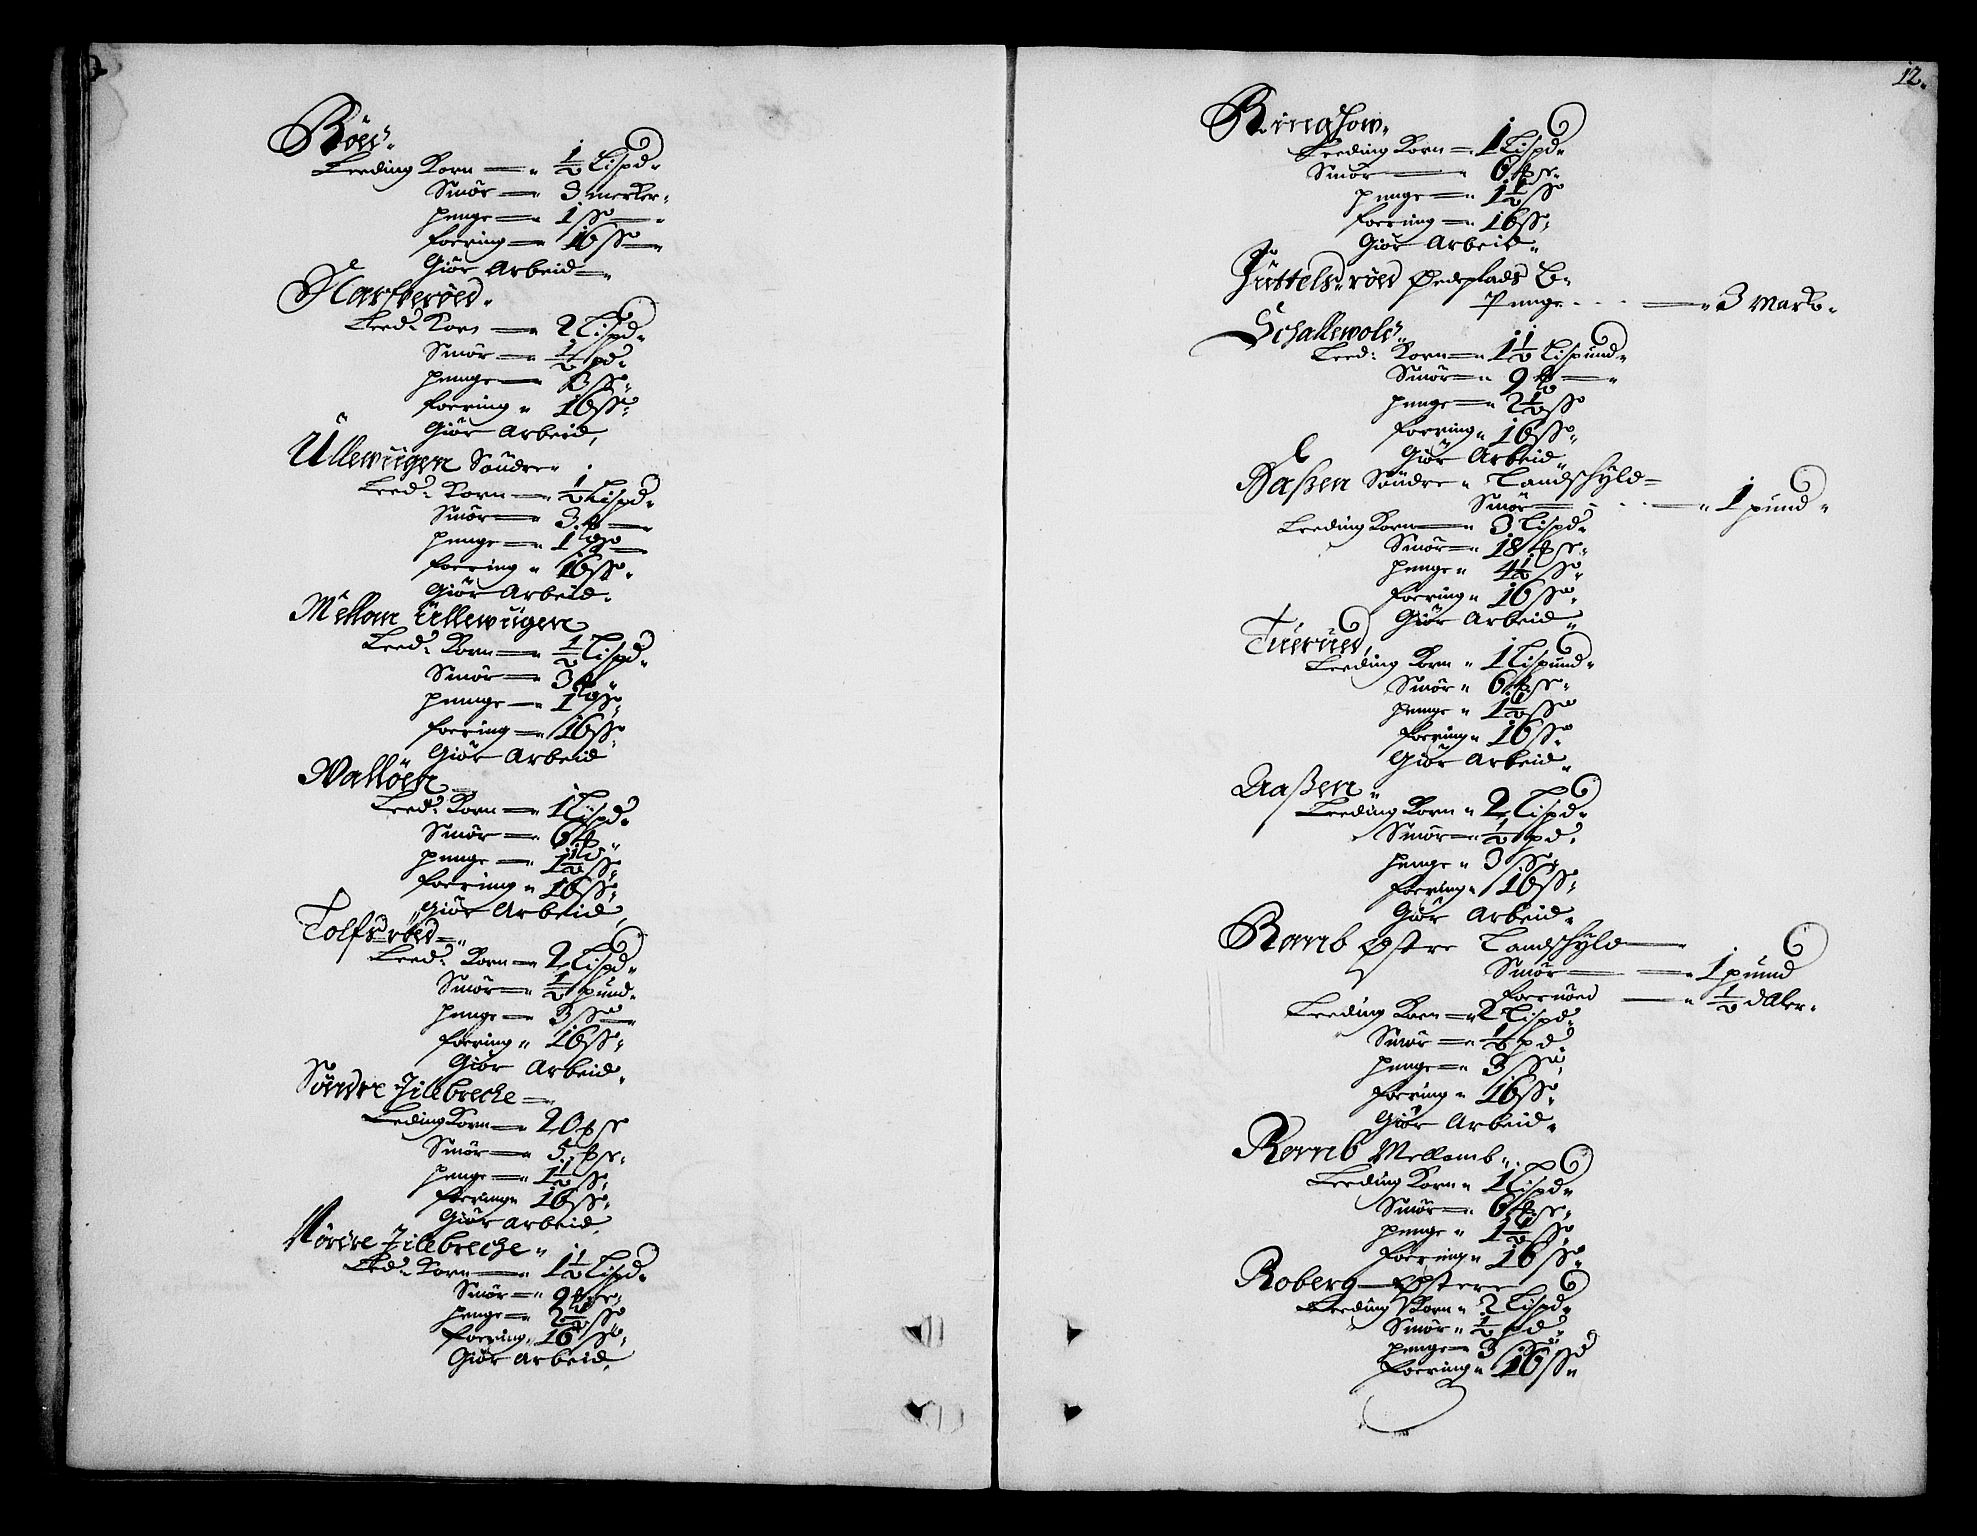 Röed
Leeding Korn — 1/2 Lispd
Smör — 3 merker
penge — 1 ss
foering — 16 ss
Giör Arbeid
Leed: Korn — 2 Lispd
Smör — 1/2 pd
penge — 3 ss
foering 16 ss
Giör Arbeid
Üllewügen Söndre
Leed: Korn — 1/2 Lispd
Smör — 3
penge — 1 ss
foering 16 ss
Giör Arbeid
Mellom Üllewügen
Leed: Korn — 1/2 Lispd
Smör — 3
penge — 1 ss
foering — 16 ss
Giör Arbeid
Wallöen
Leed: Korn — 1 Lispd
Smör — 6
penge — 1 1/2 ss
foering 16 ss
Giör Arbeid
Tolfsröed
Leed: Korn — 2 Lispd
Smör — 1/2 pund
penge — 3 ss
foering 16 ss
Giör Arbeid
Söndre Jillebreche
Leding Korn — 20
Smör — 5
penge — 1 1/2 ss
foering 16 ss
Giör arbeid
Nördre Jillebreche
Led: Korn — 1 1/2 Lispd
Smör — 9
penge — 2 1/2 ss
foering 16 ss
Giör arbeid
12.
Ringhow
Leeding Korn — 1 Lispd
Smör — 6
penge — 1 1/2 ss
foering — 16 ss
Giör Arbeid
Jüttelsröed Ödeplads
Penge — 3 mark
Schallewold
Leed: Korn — 1 1/2 Lispund
Smör — 9
penge — 2 1/2 ss
foering 16 ss
Giör Arbeid
Söndre Landschyld
Smör — 1 pund
Leeding Korn — 3 Lispd
Smör — 18
penge 4 1/2 ss
foering 16 ss
Giör Arbeid
Tuerüed
Leeding Korn 1 Lispund
Smör 6
penge 1 1/2 ss
foering 16 ss
Giör Arbeid
Aaßen
Leeding Korn 2 Lispd
Smör — 1/2 pd
penge 3 ss
foering 16 ss
Giör Arbeid
Ramb Östre Landschyld —
Smör — 1 pund
foernöed — 1/2 daler
Leeding Korn — 2 Lispd
Smör — 1/2 pd
penge — 3 ss
foering 16 ss
Giör Arbeid
Ramb Mellomb
Leeding Korn 1 Lispd
Smör — 6
penge 1 1/2 ss
foering 16 ss
Roberg Östere
Leeding Korn 2 Lispd
Smör 1/2 pd
penge — 3 ss
foering 16 ss